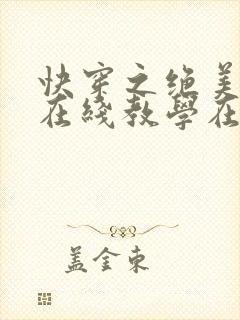 快穿之绝美
在线教學在
盖金東